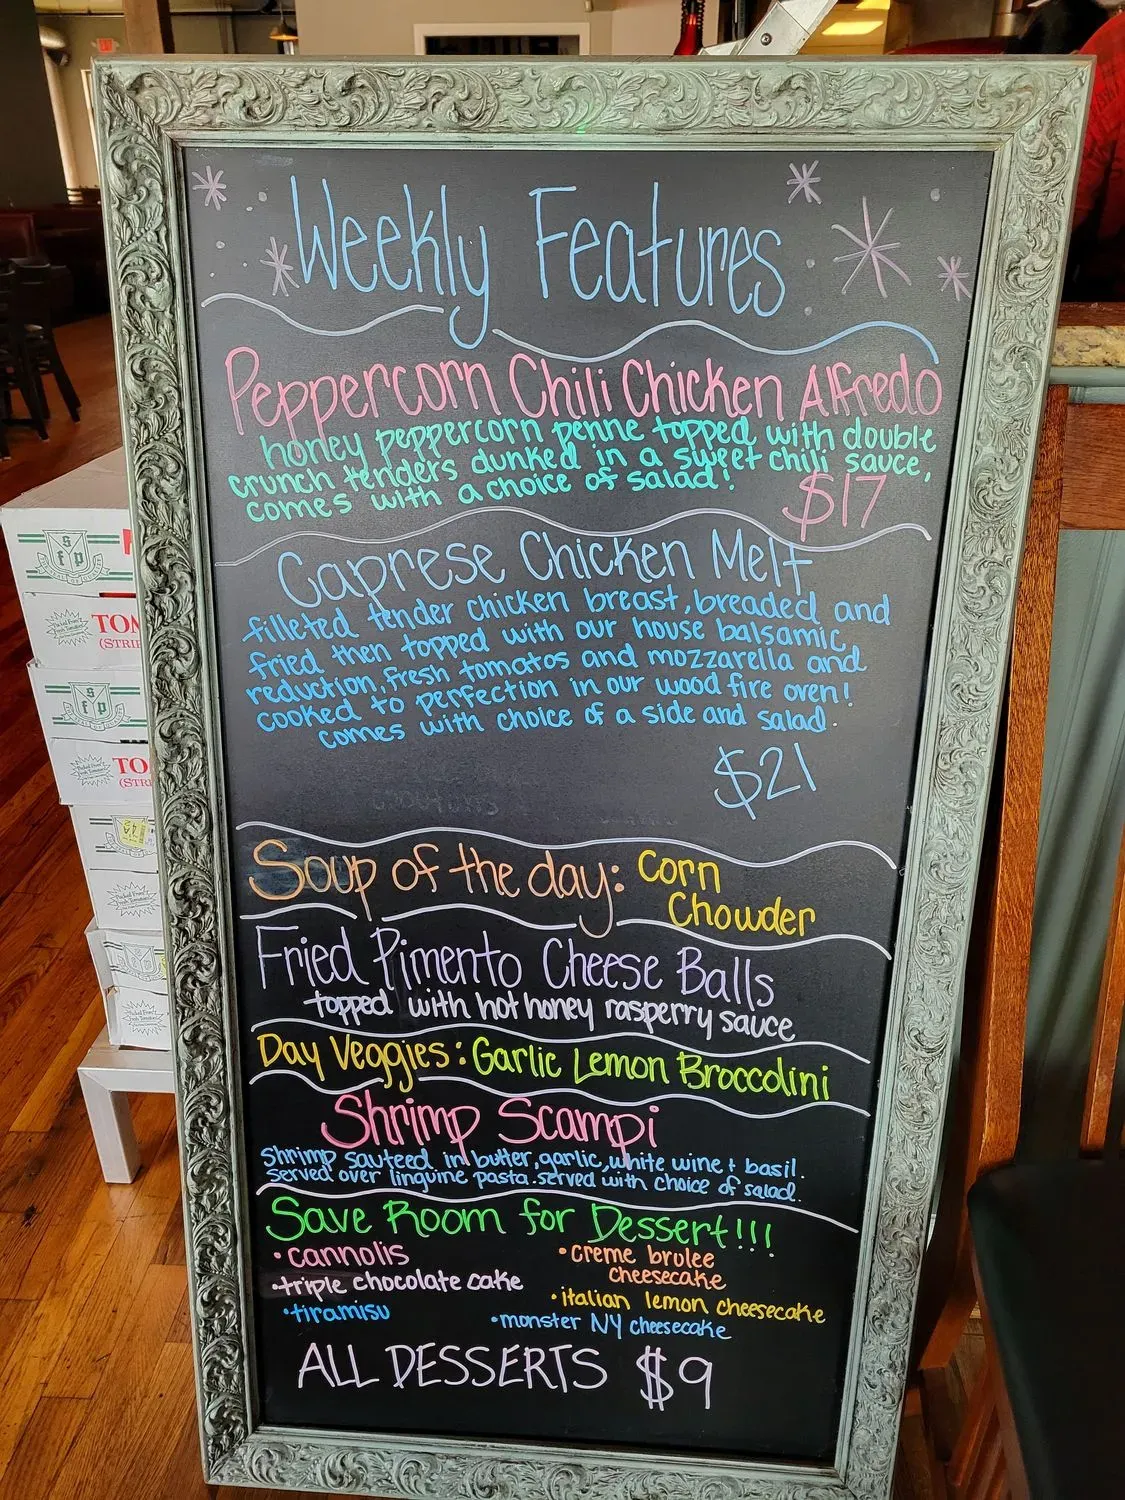 Weekly Features
Peppercorn Chili Chicken Alfredo
honey peppercorn penne topped with double
crunch tenders dunked in a sweet chili sauce,
comes with a choice of salad!
$17
Caprese Chicken Melt
filleted tender chicken breast, breaded and
fried then topped with our house balsamic
reduction, fresh tomatos and mozzarella and
cooked to perfection in our wood fire oven!
comes with choice of a side and salad.
$21
Soup of the day: Corn
Chowder
Fried Pimento Cheese Balls
topped with hot honey rasperry sauce
Day Veggies: Garlic Lemon Broccolini
Shrimp Scampi
shrimp sauteed in butter, garlic, white wine + basil.
served over linguine pasta. served with choice of salad.
Save Room for Dessert!!!
• cannolis
• triple chocolate cake
• tiramisu
• creme brulee
cheesecake
• italian lemon cheesecake
• monster NY cheesecake
ALL DESSERTS $9
sfp
TOM
(STRI
sfp
TO
(STRI